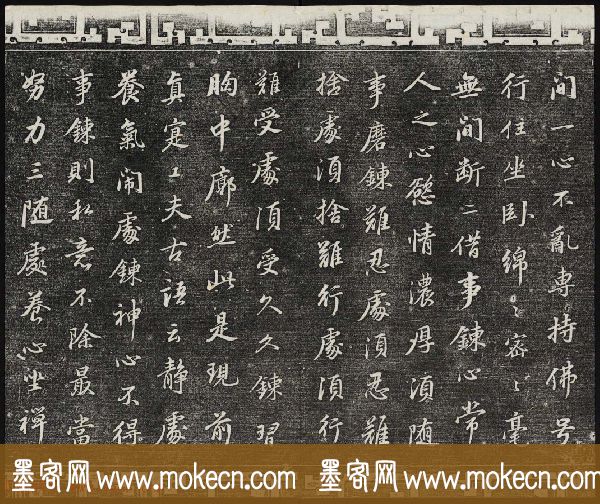 间一心不亂專持佛号
行住坐卧綿〻密〻毫
無间断二借事鍊心常
人之心慾情濃厚湏随
事磨鍊難忍處湏忍難
捨處湏捨難行處湏行
難受處湏受久久鍊習
胸中廓然此是現前
真寔工夫古語云静處
養氣闹處鍊神心不得
事鍊則私意不除最當
努力三随處养心坐禪
墨客网 www.mokecn.com 墨客网 www.mokecn.com